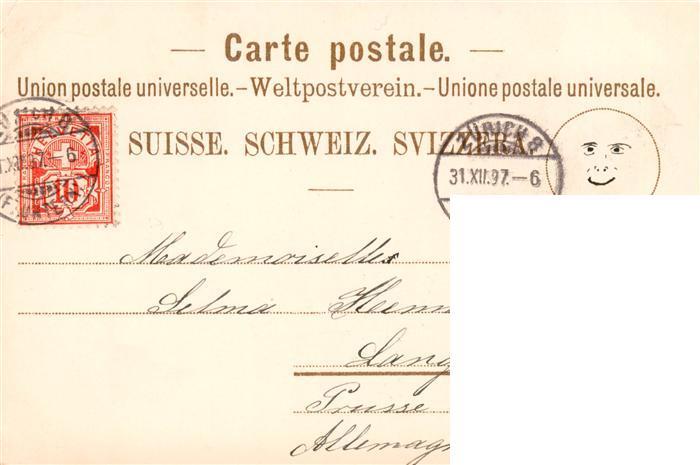 — Carte postale. —
Union postale universelle.–Weltpostverein.–Unione postale universale.
SUISSE. SCHWEIZ. SVIZZERA.
ZÜRICH 8
31.XII.97.–6
10
Mademoiselles
Selma
Prusse